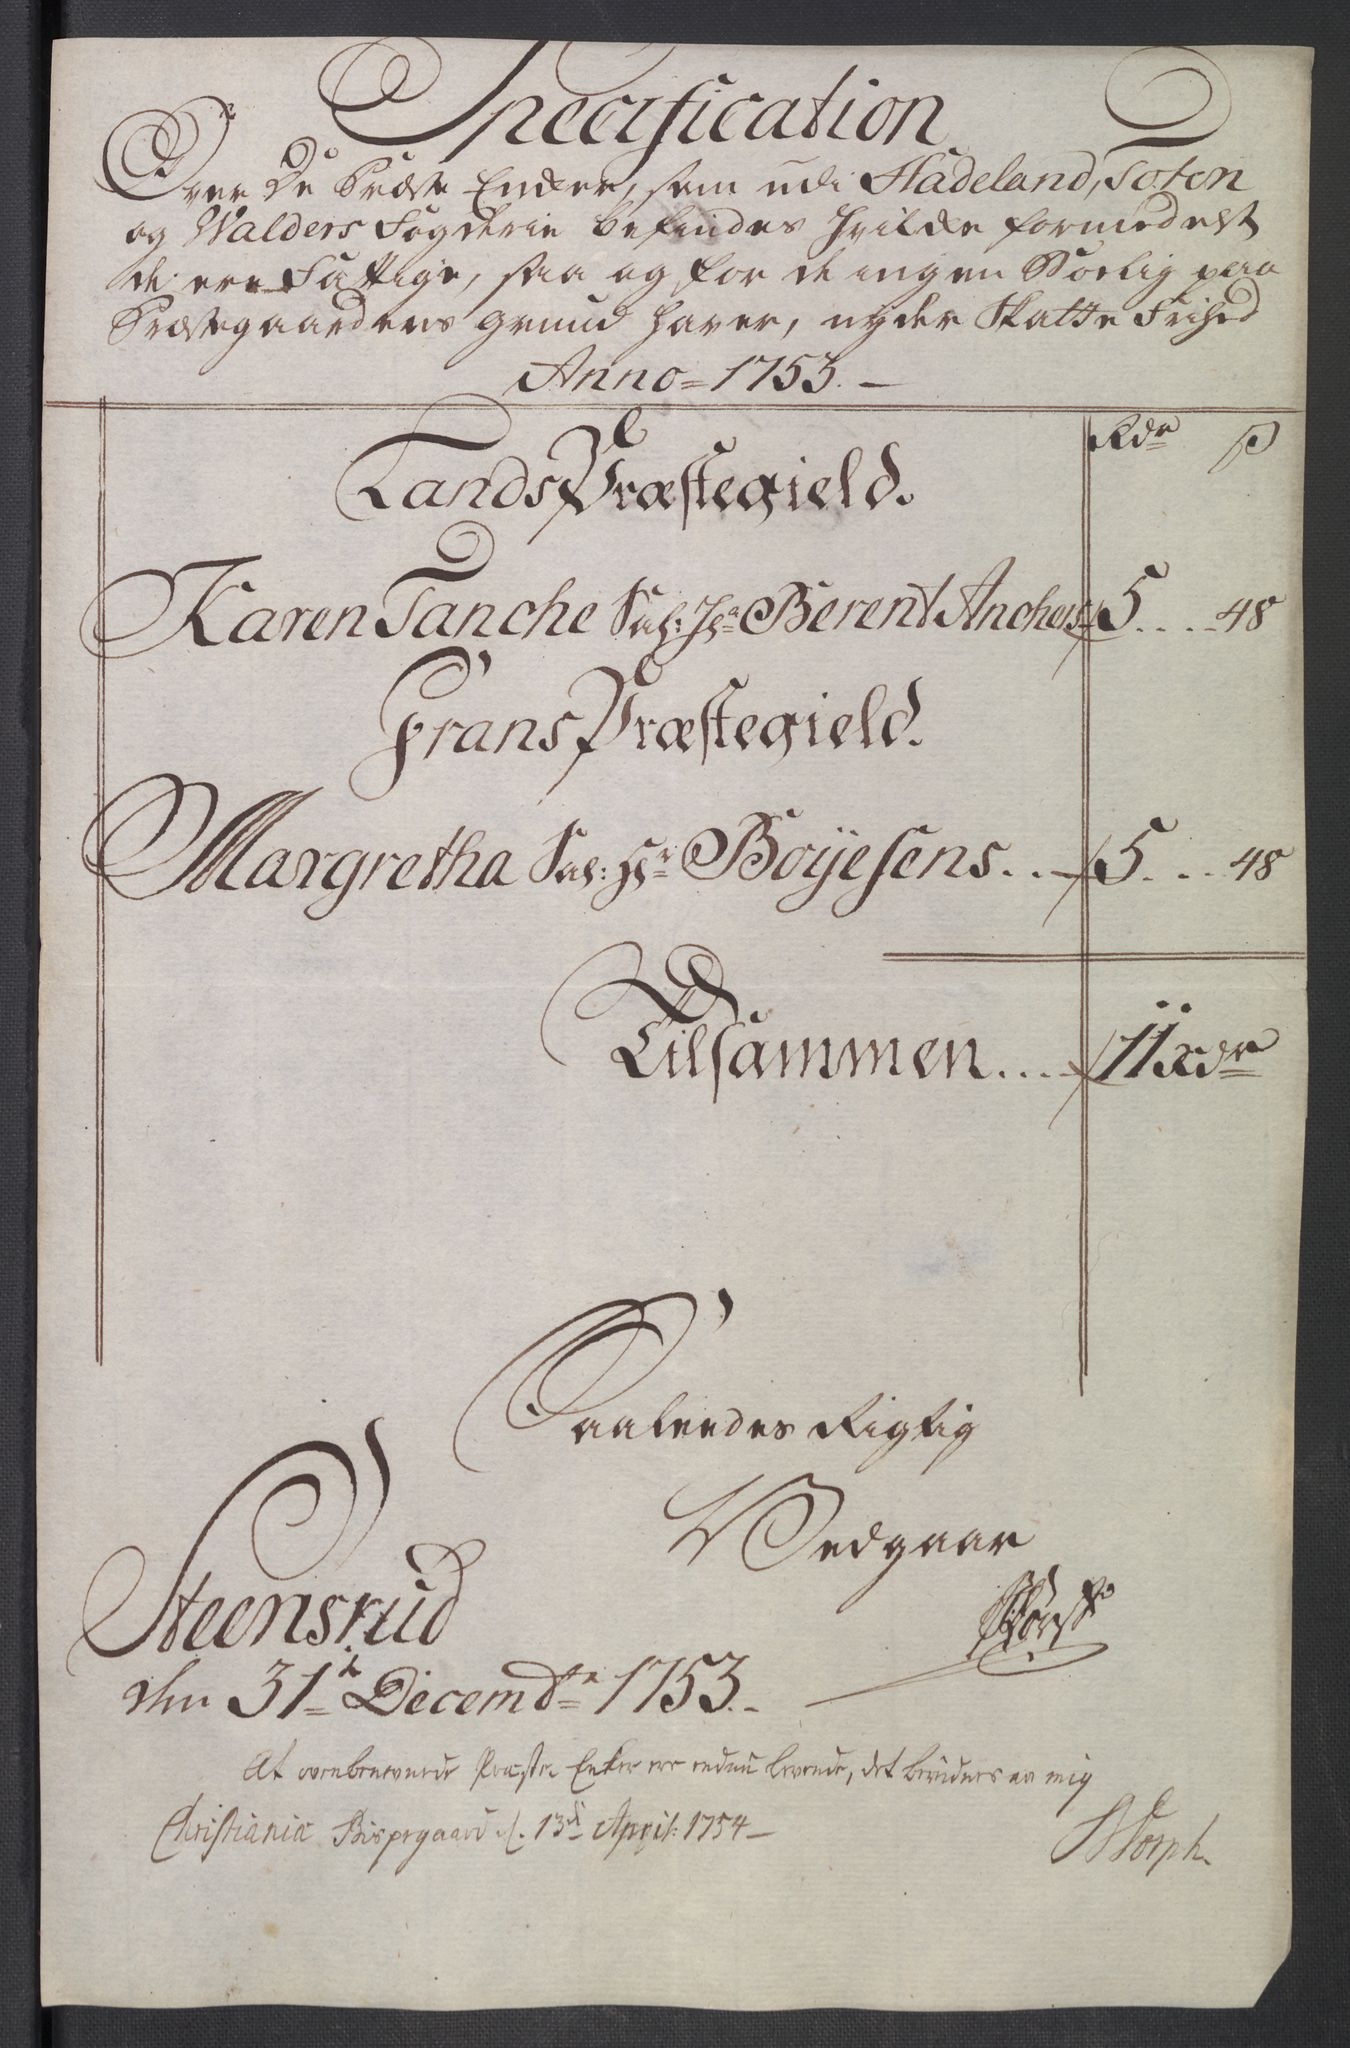 Specification
Over De Præste Encker, som udi Hadeland, Toten
og Walders Fogderie befindes hvilcke formedelst
de ere Fattige, saa og for de ingen Boelig paa
Præstegaardens grund haver, nyder Skatte Frihed
Anno = 1753. —
Rdr ß
Lands Præstegield.
Karen Tanche Sal: Hr Berent Anchers 5 . . . . 48
Grans Præstegield.
Margretha Sal: Hr Boÿesens . . 5 . . . 48
Tilsammen . . . . 11 Rdr
Saaleedes Rigtig
Vedgaar
Steensrud
den 31te Decembr 1753. –
At ovenbenevnede Præste Enker ere endnu levende, det bevidnes av mig
Christiania Bispegaard d. 13de April: 1754 —